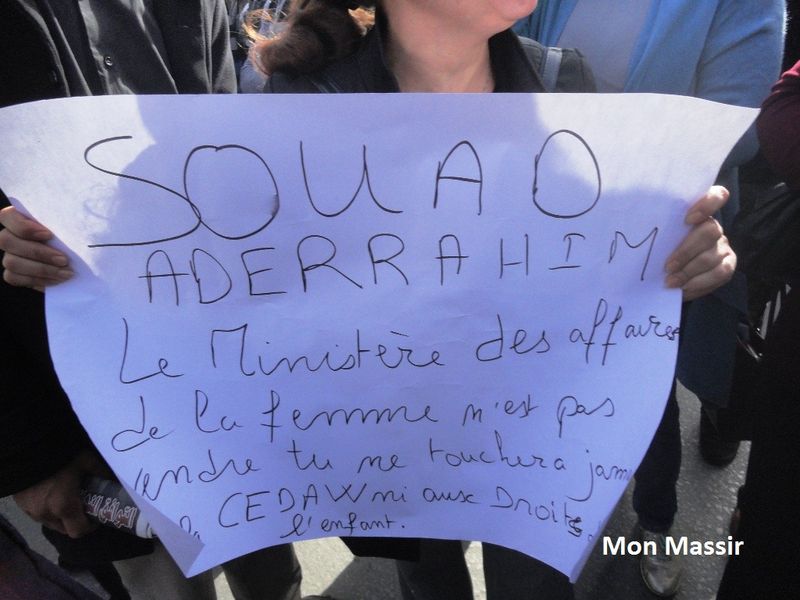 SOUAD
ADERRAHIM
Le Ministère des affaires
de la femme n'est pas
vendre tu ne touchera jam
la CEDAW ni aux Droits
l'enfant.
Mon Massir